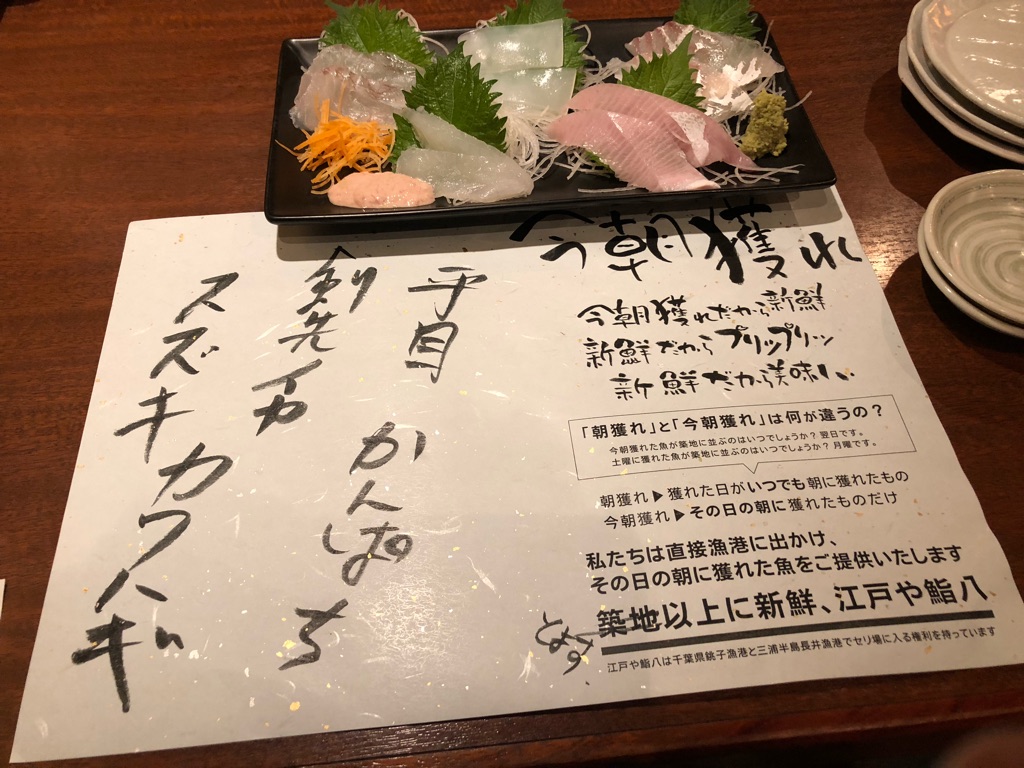 今朝獲れ
今朝獲れだから新鮮
新鮮だからプリップリッ
新鮮だから美味しい
「朝獲れ」と「今朝獲れ」は何が違うの?
今朝獲れた魚が築地に並ぶのはいつでしょうか?翌日です。
土曜に獲れた魚が築地に並ぶのはいつでしょうか?月曜です。
朝獲れ▶獲れた日がいつでも朝に獲れたもの
今朝獲れ▶その日の朝に獲れたものだけ
私たちは直接漁港に出かけ、
その日の朝に獲れた魚をご提供いたします
築地以上に新鮮、江戸や鮨八
とよす
江戸や鮨八は千葉県銚子漁港と三浦半島長井漁港でセリ場に入る権利を持っています
平目
かんぱち
剣先イカ
スズキ
カワハギ